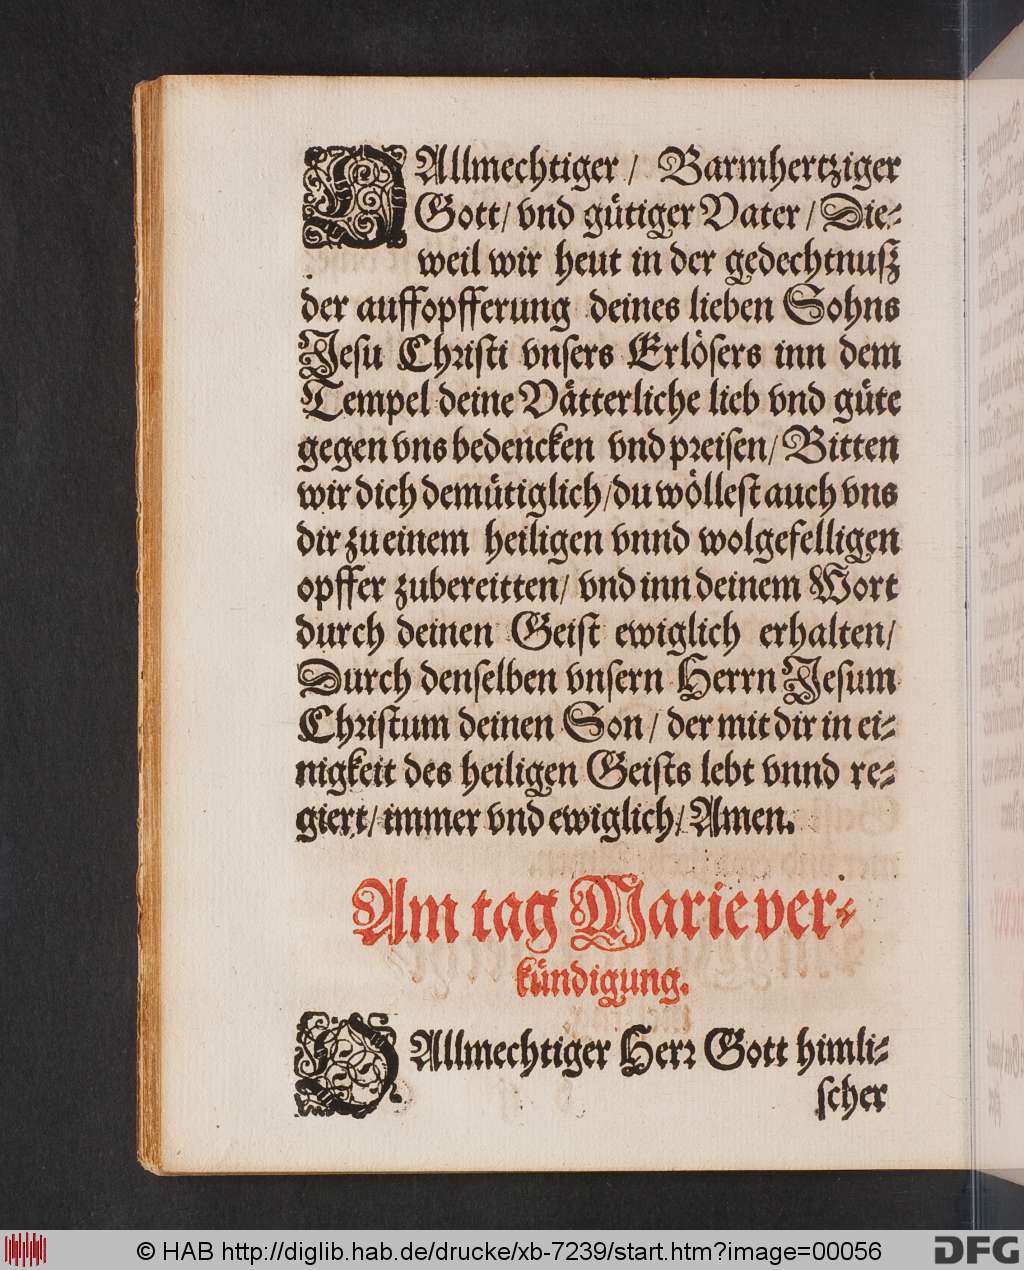 O Allmechtiger / Barmhertziger
Gott / vnd gütiger Vater / Die⸗
weil wir heut in der gedechtnuß
der auffopfferung deines lieben Sohns
Jesu Christi vnsers Erlösers inn dem
Tempel deine Vätterliche lieb vnd güte
gegen vns bedencken vnd preisen / Bitten
wir dich demütiglich / du wöllest auch vns
dir zu einem heiligen vnnd wolgefelligen
opffer zubereitten / vnd inn deinem Wort
durch deinen Geist ewiglich erhalten /
Durch denselben vnsern Herrn Jesum
Christum deinen Son / der mit dir in ei⸗
nigkeit des heiligen Geists lebt vnnd re⸗
giert / immer vnd ewiglich / Amen.
Am tag Marie ver⸗
kündigung.
O Allmechtiger Herr Gott himli⸗
scher
© HAB http://diglib.hab.de/drucke/xb-7239/start.htm?image=00056
DFG